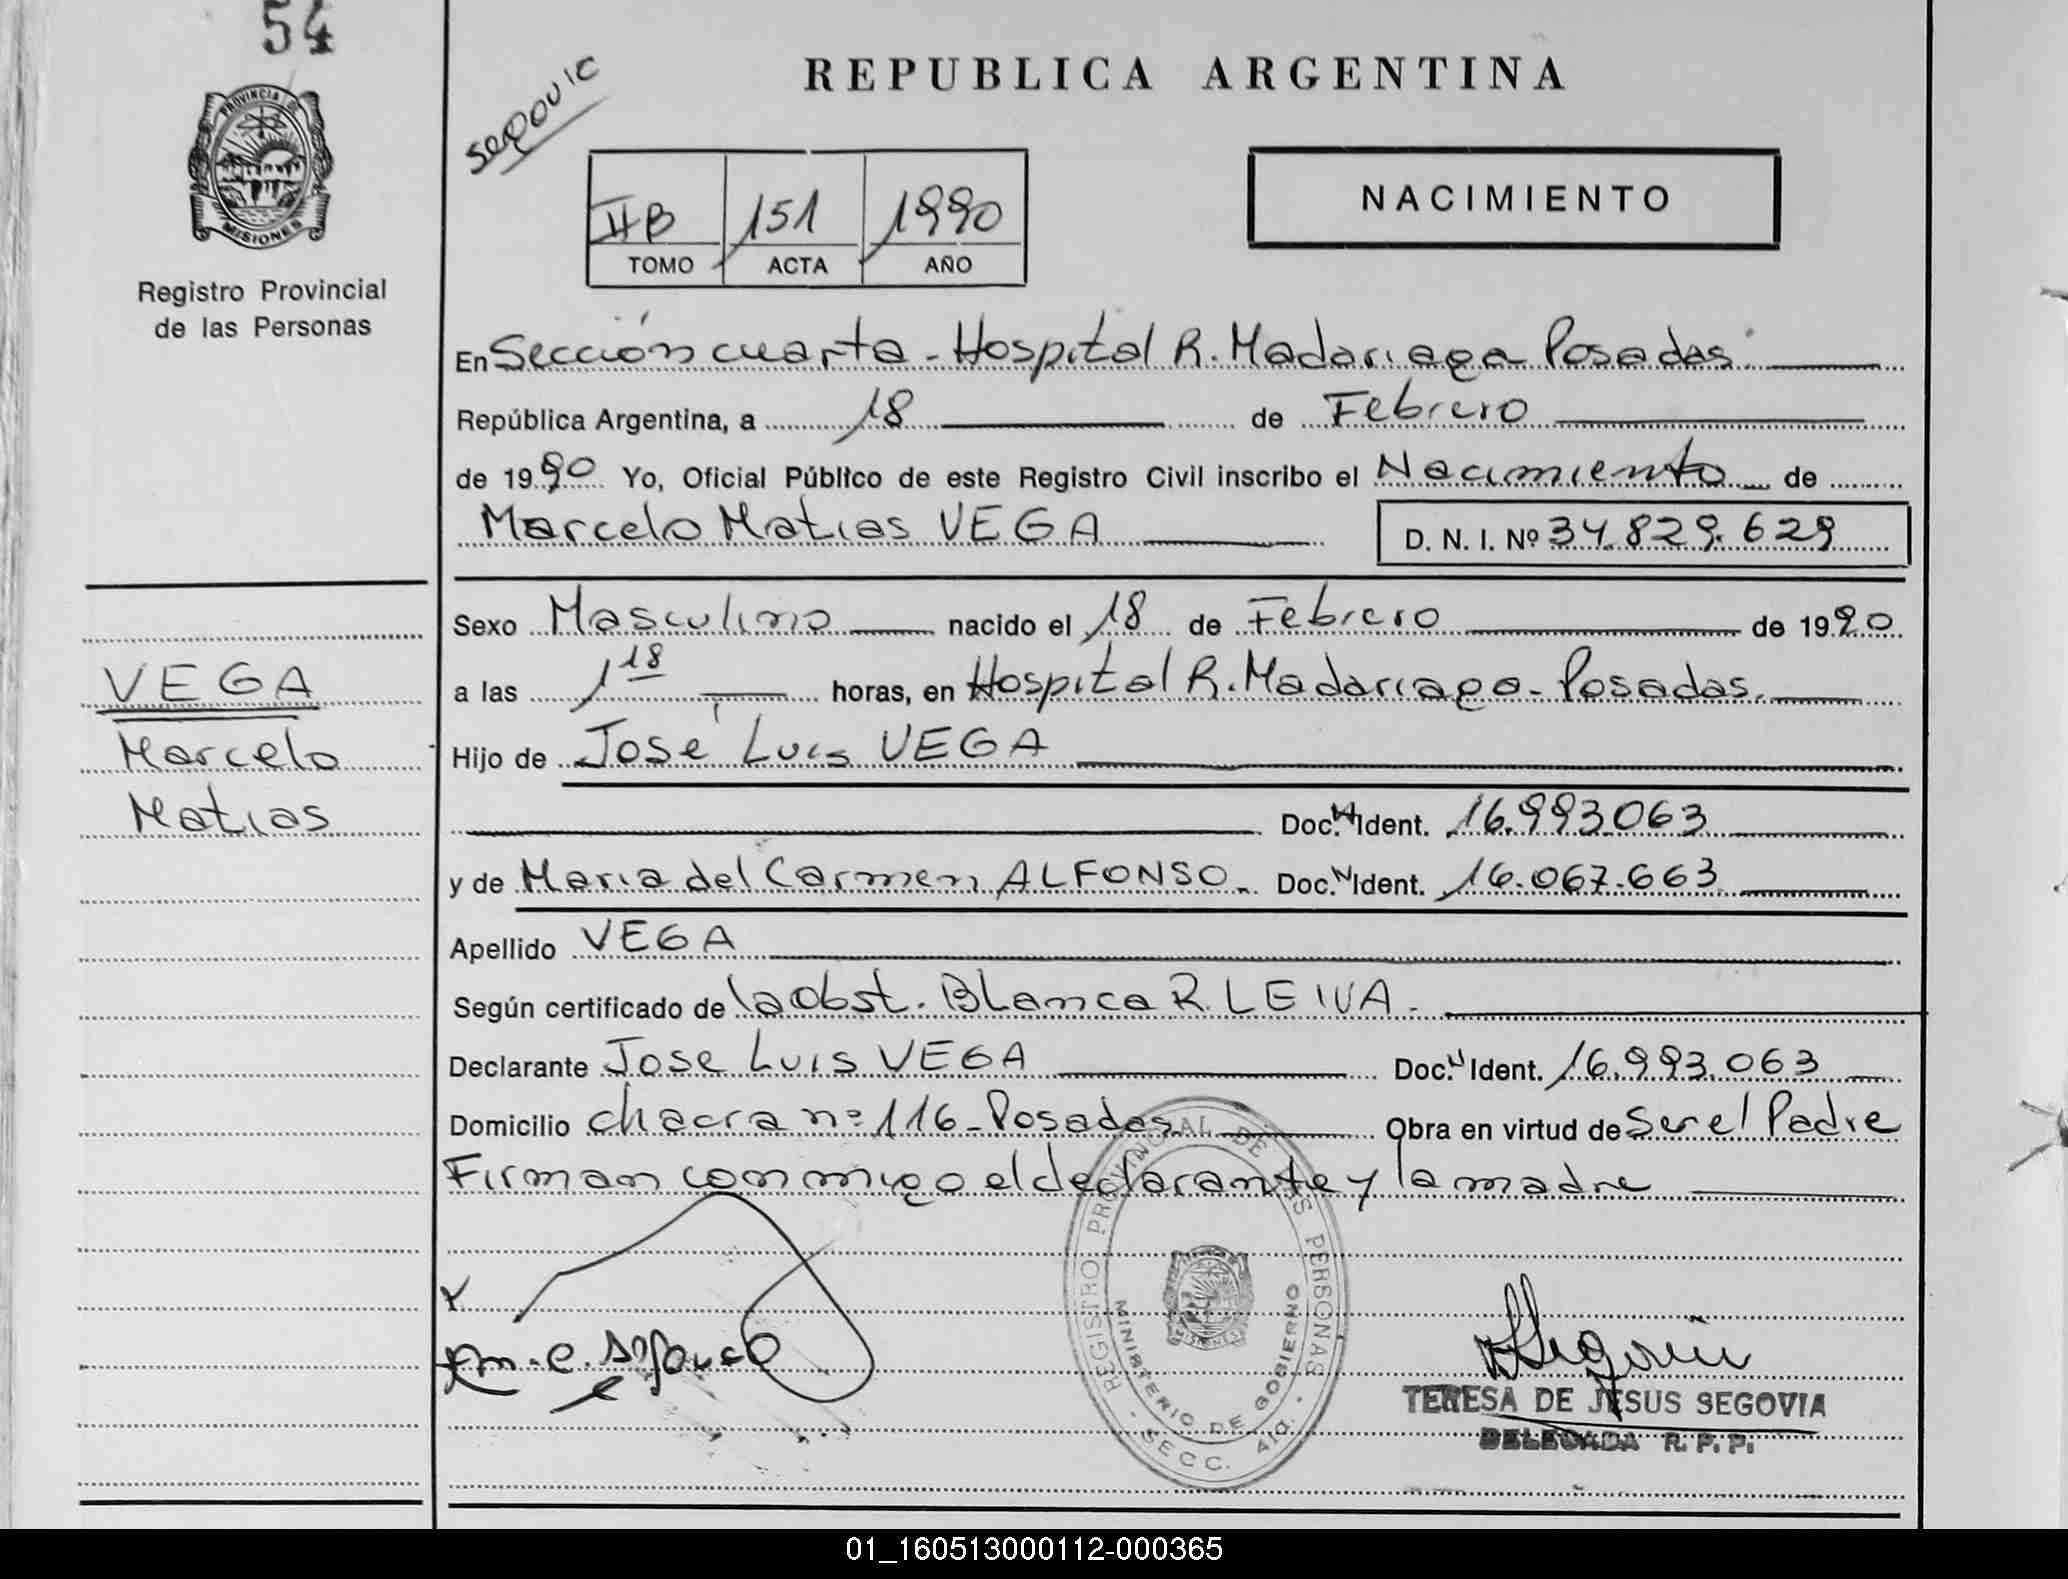 54
PROVINCIA DE
MISIONES
Registro Provincial
de las Personas
VEGA
Marcelo
Matias
Segovia
REPUBLICA ARGENTINA
IIB 151 1990
TOMO ACTA AÑO
NACIMIENTO
En Sección cuarta - Hospital R. Madariaga Posadas.
República Argentina, a 18 de Febrero
de 1990 Yo, Oficial Público de este Registro Civil inscribo el Nacimiento de
Marcelo Matias VEGA D. N. I. Nº 34.829.629
Sexo Masculino nacido el 18 de Febrero de 1990
a las 1 18 horas, en Hospital R. Madariaga - Posadas.
Hijo de José Luis VEGA
Doc. N Ident. 16.993.063
y de Maria del Carmen ALFONSO - Doc. N Ident. 16.067.663
Apellido VEGA
Según certificado de la obst. Blanca R. LEIVA -
Declarante Jose Luis VEGA Doc. N Ident. 16.993.063
Domicilio chacra nº 116 - Posadas Obra en virtud de Ser el Padre
Firman conmigo el declarante y la madre
REGISTRO PROVINCIAL DE LAS PERSONAS
MINISTERIO DE GOBIERNO
- SECC. 4ta. -
M. C. Alfonso
Segovia
TERESA DE JESUS SEGOVIA
DELEGADA R. P. P.
01_160513000112-000365